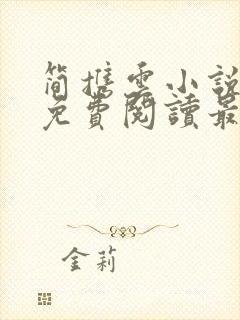 简携云小說
免費閱讀最
金莉